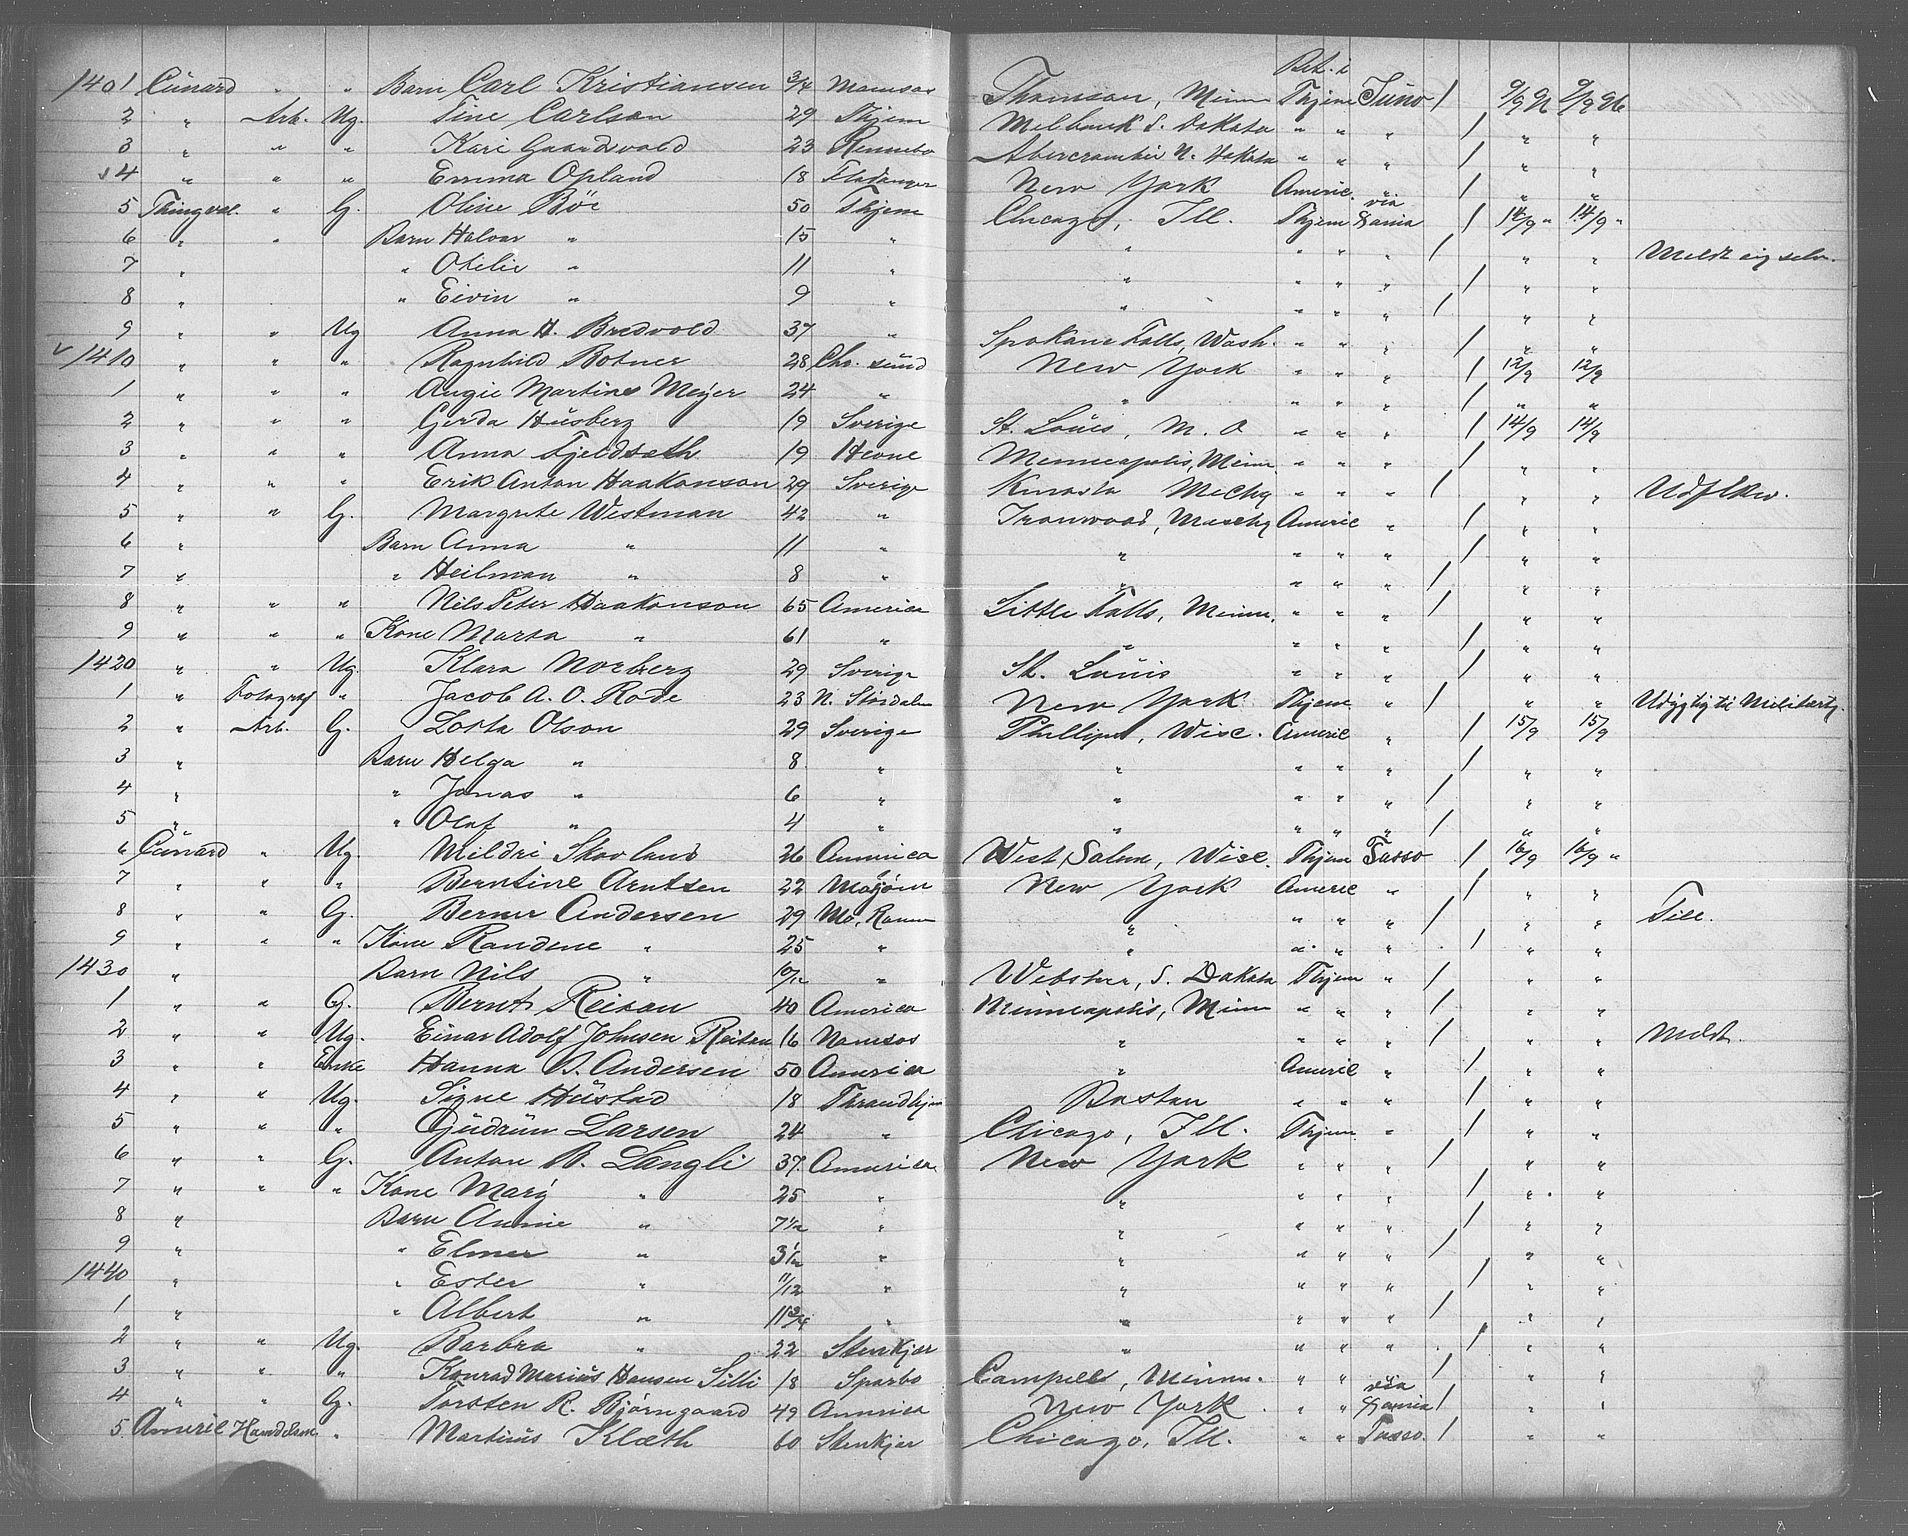 Bet. i
1401 Cunard " " Barn Carl Kristiansen 3/4 Namsos Thomson, Minn Thjem Juno / 9/9 96 9/9 96
2 " Arb. Ug. Tine Carlson 29 Thjem Milbank S. Dakota " " " / " "
3 " " " Kari Gaardsvold 23 Rennebo Abercrombie N. Dakota " " " / " "
4 " " " Emma Opland 18 Fladanger New York Americ. " / " "
5 Thingval. " G. Oline Böe 50 Thjem Chicago, Ill. Thjem via Dania / 14/9 " 14/9 "
6 " " Barn Halvar " 15 " " " " " / " " Meldt sig selv.
7 " " Otilie " 11 " " " " " / " "
8 " " Eivin " 9 " " " " " / " "
9 " " Ug Anna H. Bredvold 37 " Spokane Falls, Wash. " " " / " "
1410 " " " Ragnhild Botner 28 Chr. sund New York " " " / 12/9 12/9
1 " " " Angie Martines Meyer 24 " " " " " / " "
2 " " " Gerda Husberg 19 Sverige St. Louis, M. O " " " / 14/9 14/9
3 " " " Anna Fjeldseth 19 Hevne Minneapolis, Minn " " " / " "
4 " " " Erik Anton Haakonson 29 Sverige Michg " " " / " "
5 " " G. Margrete Westman 42 " Ironwood, Mischg Americ " / " "
6 " Barn Anna " 11 " " " " " / " "
7 " " Heilman " 8 " " " " " / " "
8 " " " Nils Peter Haakonson 65 America Little Falls, Minn. " " " / " "
9 " " " Kone Marta " 61 " " " " / " "
1420 " " Ug. Klara Norberg 29 Sverige St. Louis " " " / " "
1 " Fotograf " Jacob A. O. Rode 23 N. Stördalen New York Thjem " / " " Udygtig til Militærtj.
2 " Arb. G. Lotta Olson 29 Sverige Phillips, Wisc. Americ " / 15/9 15/9
3 " Barn Helga " 8 " " " " " / " "
4 " " Jonas " 6 " " " " " / " "
5 " " Olaf " 4 " " " " " / " "
6 Cunard " Ug. Mildri Skovland 26 America West Salem, Wisc. Thjem Tasso / 16/9 16/9 "
7 " " " Berntine Arntsen 22 New York Americ " / " "
8 " " G. Berner Andersen 29 Mo, Ranen " " " " / " "
9 " " " Kone Randene " 25 " " " " " / " "
1430 " Barn Nils " 10/12 " Webster, S. Dakota Thjem " / " "
1 " " G. Bernt Reitan 40 America Minneapolis, Minn " " " / " "
2 " " Ug. Einar Adolf Johnsen Reitan 16 Namsos " " " " / " " Meldt.
3 " " Enke Hanna J. Andersen 50 America " Americ " / " "
4 " " Ug. Signe Hustad 18 Throndhjem Bostan " " " / " "
5 " " " Gudrun Larsen 24 " Chicago, Ill. Thjem " / " "
6 " " G. Anton B. Langli 37 America New York " " " / " "
7 " " " Kone Mary " 25 " " " " " / " "
8 " Barn Annie " 7 1/2 " " " " " / " "
9 " " Elmer " 3 1/2 " " " " " / " "
1440 " " Ester " 11/12 " " " " " / " "
1 " " Albert " 11 3/4 " " " " " / " "
2 " " Ug. Barbra " 22 Stenkjær " " " " / " "
3 " " " Konrad Marius Hansen Selli 18 Sparbo Campell, Minn. " " " / " "
4 " " G. Torsten R. Bjørngaard 49 America New York " " via Dania / " "
5 Americ Handelsm " Martius Klæth 60 Stenkjær Chicago, Ill. " " Tasso. / " "